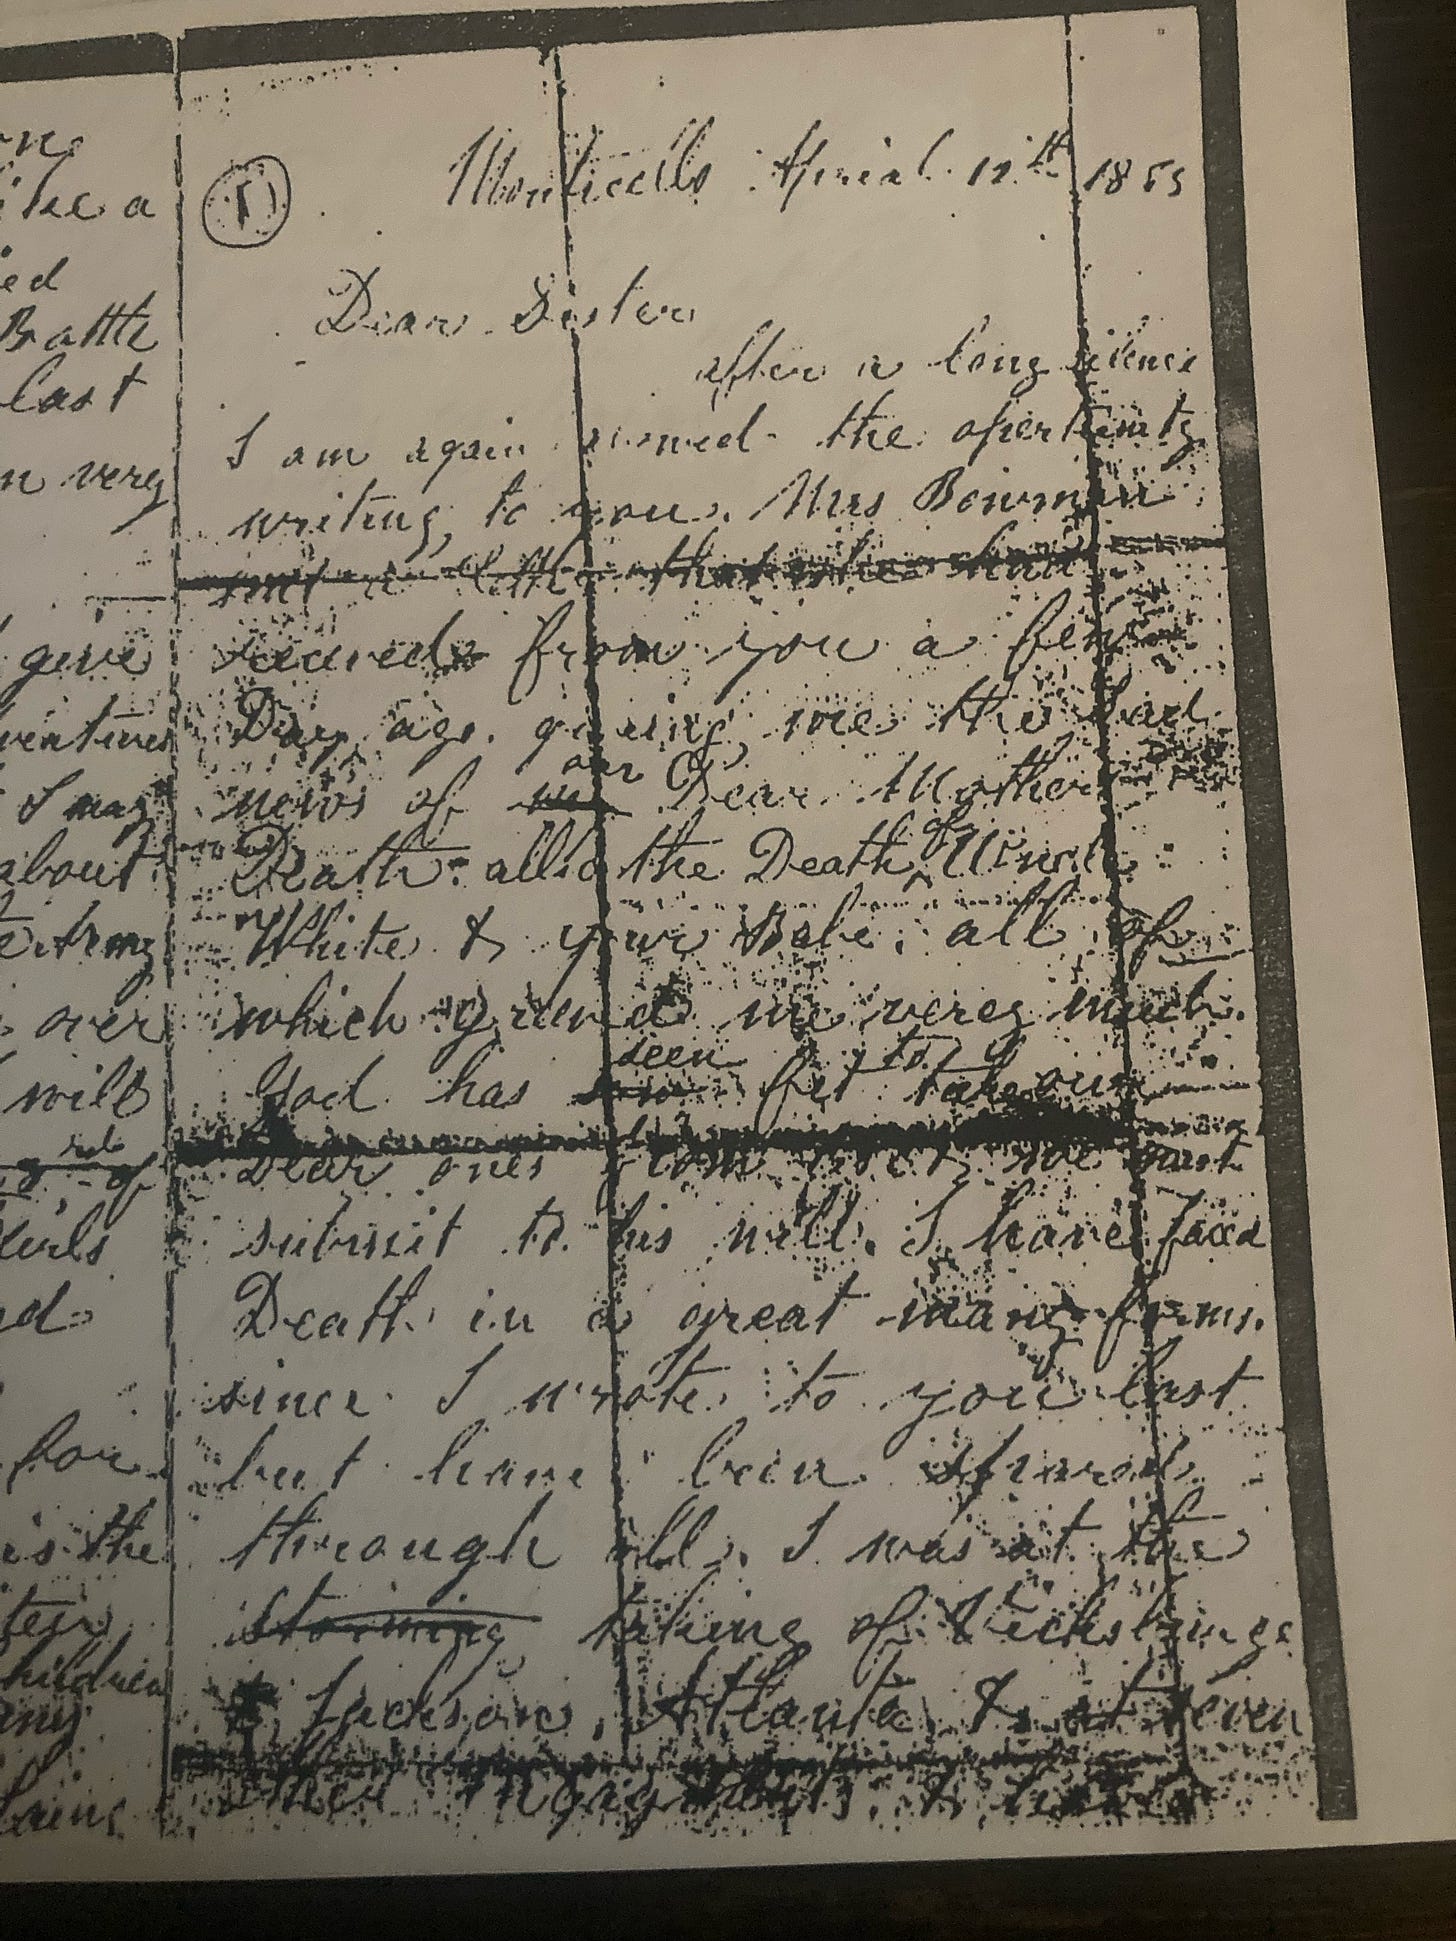 ilee a
ed
Battle
last
n very
give
ventures
I may
about
Army
over
will
of
Girls
for
is the
children
①
Monticello Aprial 12th 1865
Dear Sister
after a long silence
I am again the opertunity
writing to you. Mrs Bowman
sent a letter that she had
recived from you a few
Day ago. giving me the sad
news of our Dear Mother
Death. allso the Death of Uncle
White & your Babe. all of
which grieved me verey much.
God has seen fit to take our
Dear ones from us & we must
submit to his will. I have faced
Death in a great many forms.
since I wrote to you last
but have bein spared
through all. I was at the
storming taking of Vicksburge
Jackson, Atlanta & at seven
other